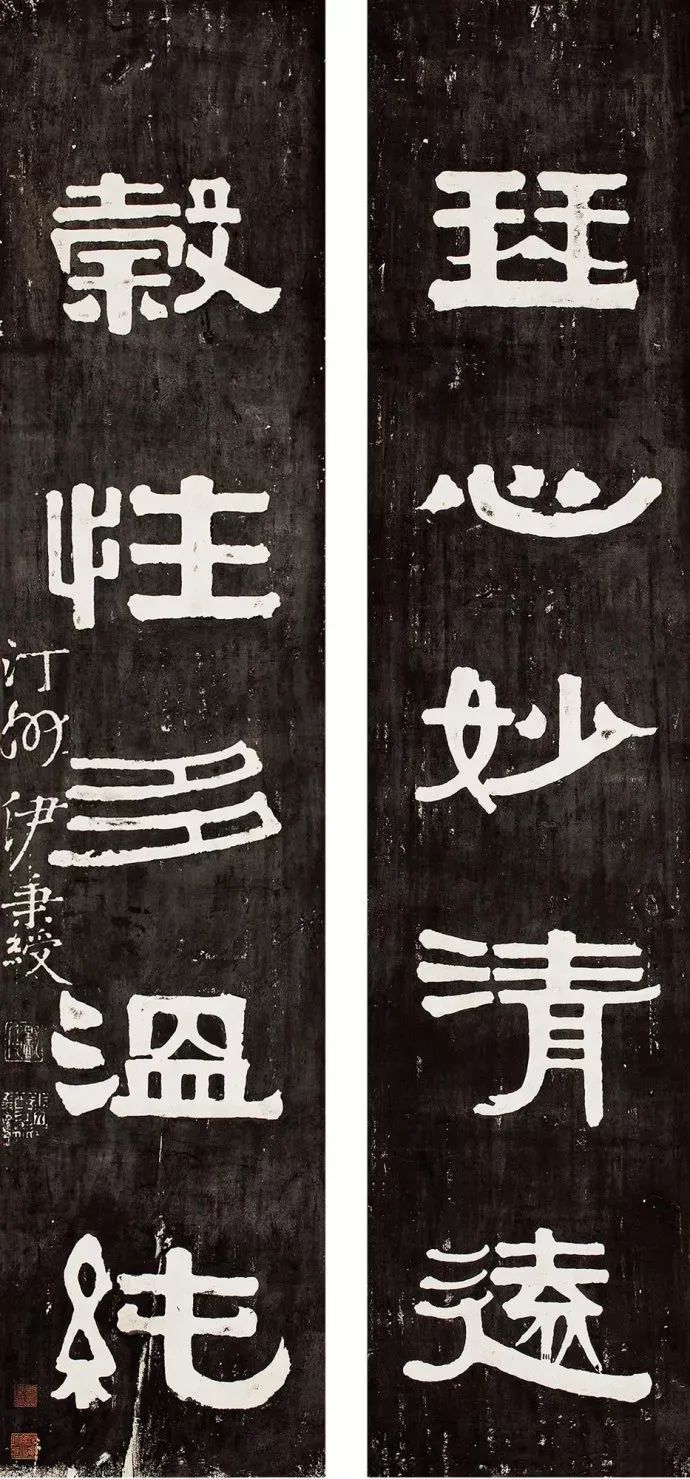 琴心妙清遠
穀性多溫純
汀州伊秉綬